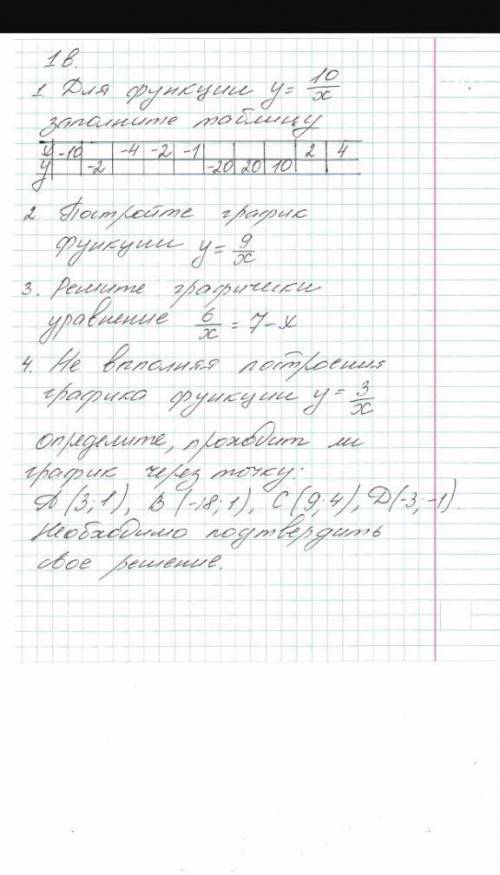 1в.
1 Для функции y = 10/x
заполните таблицу
x -10 -4 -2 -1 2 4
y -2 -20 20 10
2 Постройте график
функции y = 9/x
3. Решите графически
уравнение 6/x = 7-x
4. Не выполняя построения
графика функции y = 3/x
определите, проходит ли
график через точку:
А (3; 1), В (-18; 1), С (9; 4), D (-3; -1).
Необходимо подтвердить
свое решение.